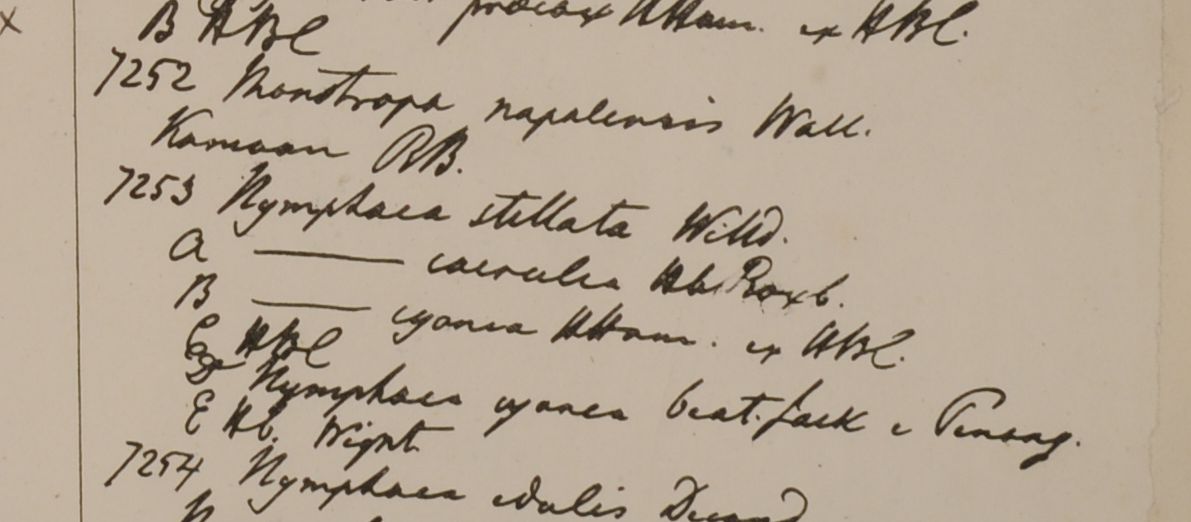 praecox HHam. ex HBC.
B HBC
7252 Monotropa napalensis Wall.
Kamaon RB.
7253 Nymphaea stellata Willd.
a —— caerulea Hb Roxb.
B —— cyanea HHam. ex HBC.
C HBC
D Nymphaea cyanea beat. Jack e Penang.
E Hb. Wight
7254 Nymphaea edulis Decand